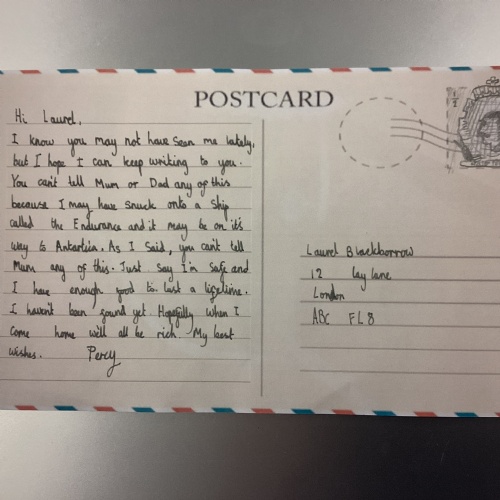 POSTCARD
Hi Laurel,
I know you may not have seen me lately,
but I hope I can keep writing to you.
You can't tell Mum or Dad any of this
because I may have snuck onto a ship
called the Endurance and it may be on it's
way to Antartica. As I said, you can't tell
Mum any of this. Just say I'm safe and
I have enough food to last a lifetime.
I haven't been found yet. Hopefully when I
come home will all be rich. My best
wishes. Percy
Laurel Blackborrow
12 lay lane
London
ABC FL8